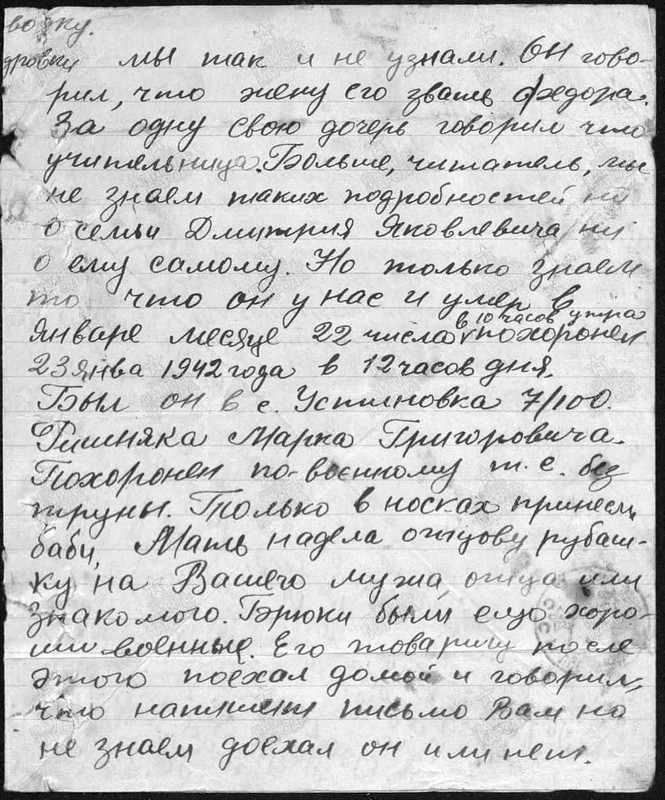 возку.
дровки мы так и не узнали. Он гово-
рил, что жену его звать Федора.
За одну свою дочерь говорил что
учительница. Больше, читатель, мы
не знаем таких подробностей ни
о семьи Дмитрия Яковлевича ни
о ему самому. Но только знаем
то что он у нас и умер в
январе месяце 22 числа в 10 часов утра похоронен
23 янва 1942 года в 12 часов дня.
Был он в с. Устиновка 7/100.
Гришняка Марка Григоровича.
Похоронен по-военному т.е. без
труны. Только в носках принесли
баби, Мать надела отцову рубаш-
ку на Вашего мужа отца или
знакомого. Брюки были ещо хоро-
ши военные. Его товарищ после
этого поехал домой и говорил,
что напишет письмо Вам но
не знаем доехал он или нет.